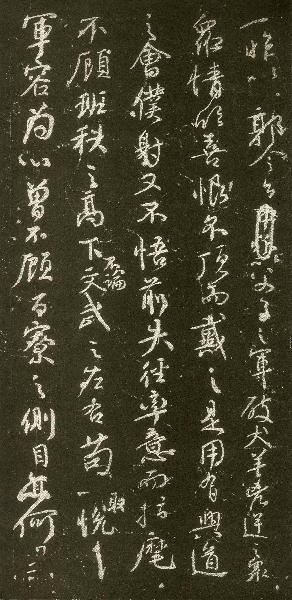 一昨以郭令公父子之軍破犬羊凶逆之衆
衆情欣喜恨不頂而戴之是用有興道
之會僕射又不悟前失徑率意而指麾
不顧班秩之高下不論文武之左右苟以取悅
軍容為心曾不顧百寮之側目亦何異